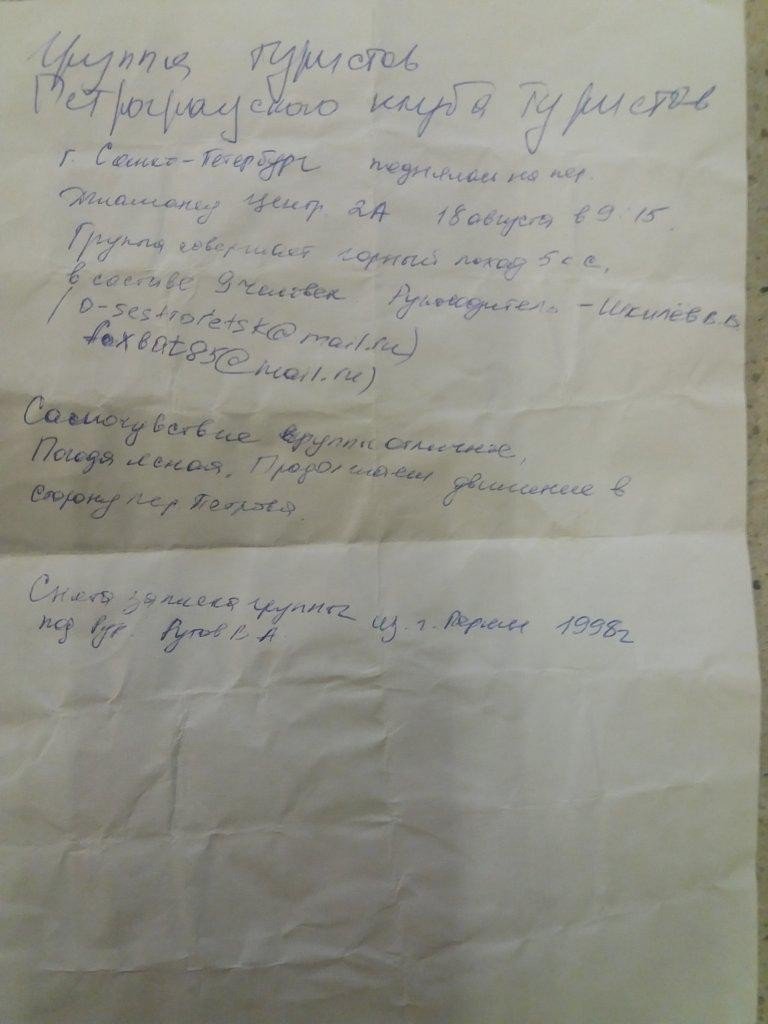 Группа туристов
Петроградского клуба туристов
г. Санкт-Петербург поднялась на пер.
Джамансу Центр. 2А 18 августа в 9:15.
Группа совершает горный поход 5 к с,
в составе 9 человек Руководитель - Шкилёв В.В.
(D-sestroretsk@mail.ru)
foxbat85@mail.ru)
Самочувствие группы отличное,
Погода ясная. Продолжаем движение в
сторону пер Петрова
Снята записка группы из г. Перми 1998г
под рук. В А